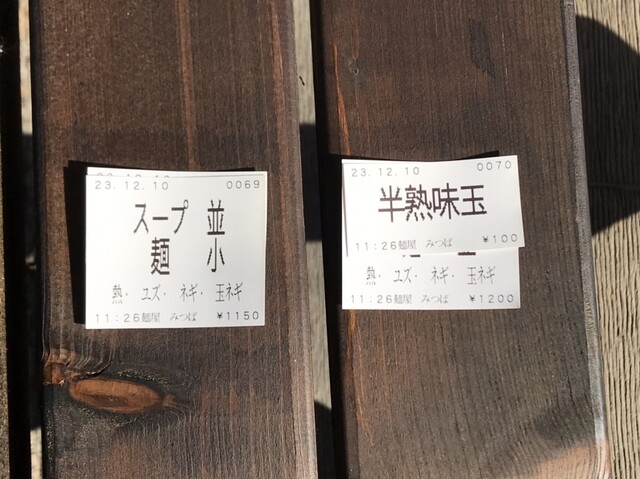 23.12.10 0069
スープ 並
麺 小
熱・ ユズ・ ネギ・ 玉ネギ
11:26麺屋 みつば ¥1150
23.12.10 0070
半熟味玉
11:26麺屋 みつば ¥100
熱・ ユズ・ ネギ・ 玉ネギ
11:26麺屋 みつば ¥1200